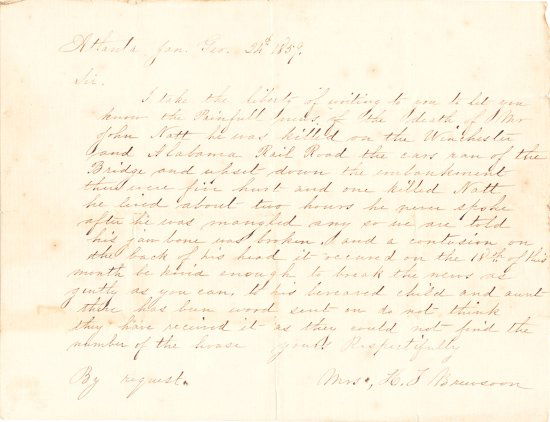 Atlanta Jan. Geo. 24th 1859.
Sir.
I take the liberty of writing to you to let you
know the Painfull news of the death of Mr
John Natt he was killed on the Winchester
and Alabama Rail Road the cars ran of the
Bridge and upset down the embankment
there were five hurt and one killed Natt
he lived about two hours he never spoke
after he was mangled any so we are told
his jaw bone was broken and a contusion on
the back of his head it occured on the 18th of this
month be kind enough to break the news as
gently as you can, to his bereaved child and aunt
there has been word sent on do not think
they have received it as they could not find the
number of the house yours Respectifully
By request. Mrs., H. T.